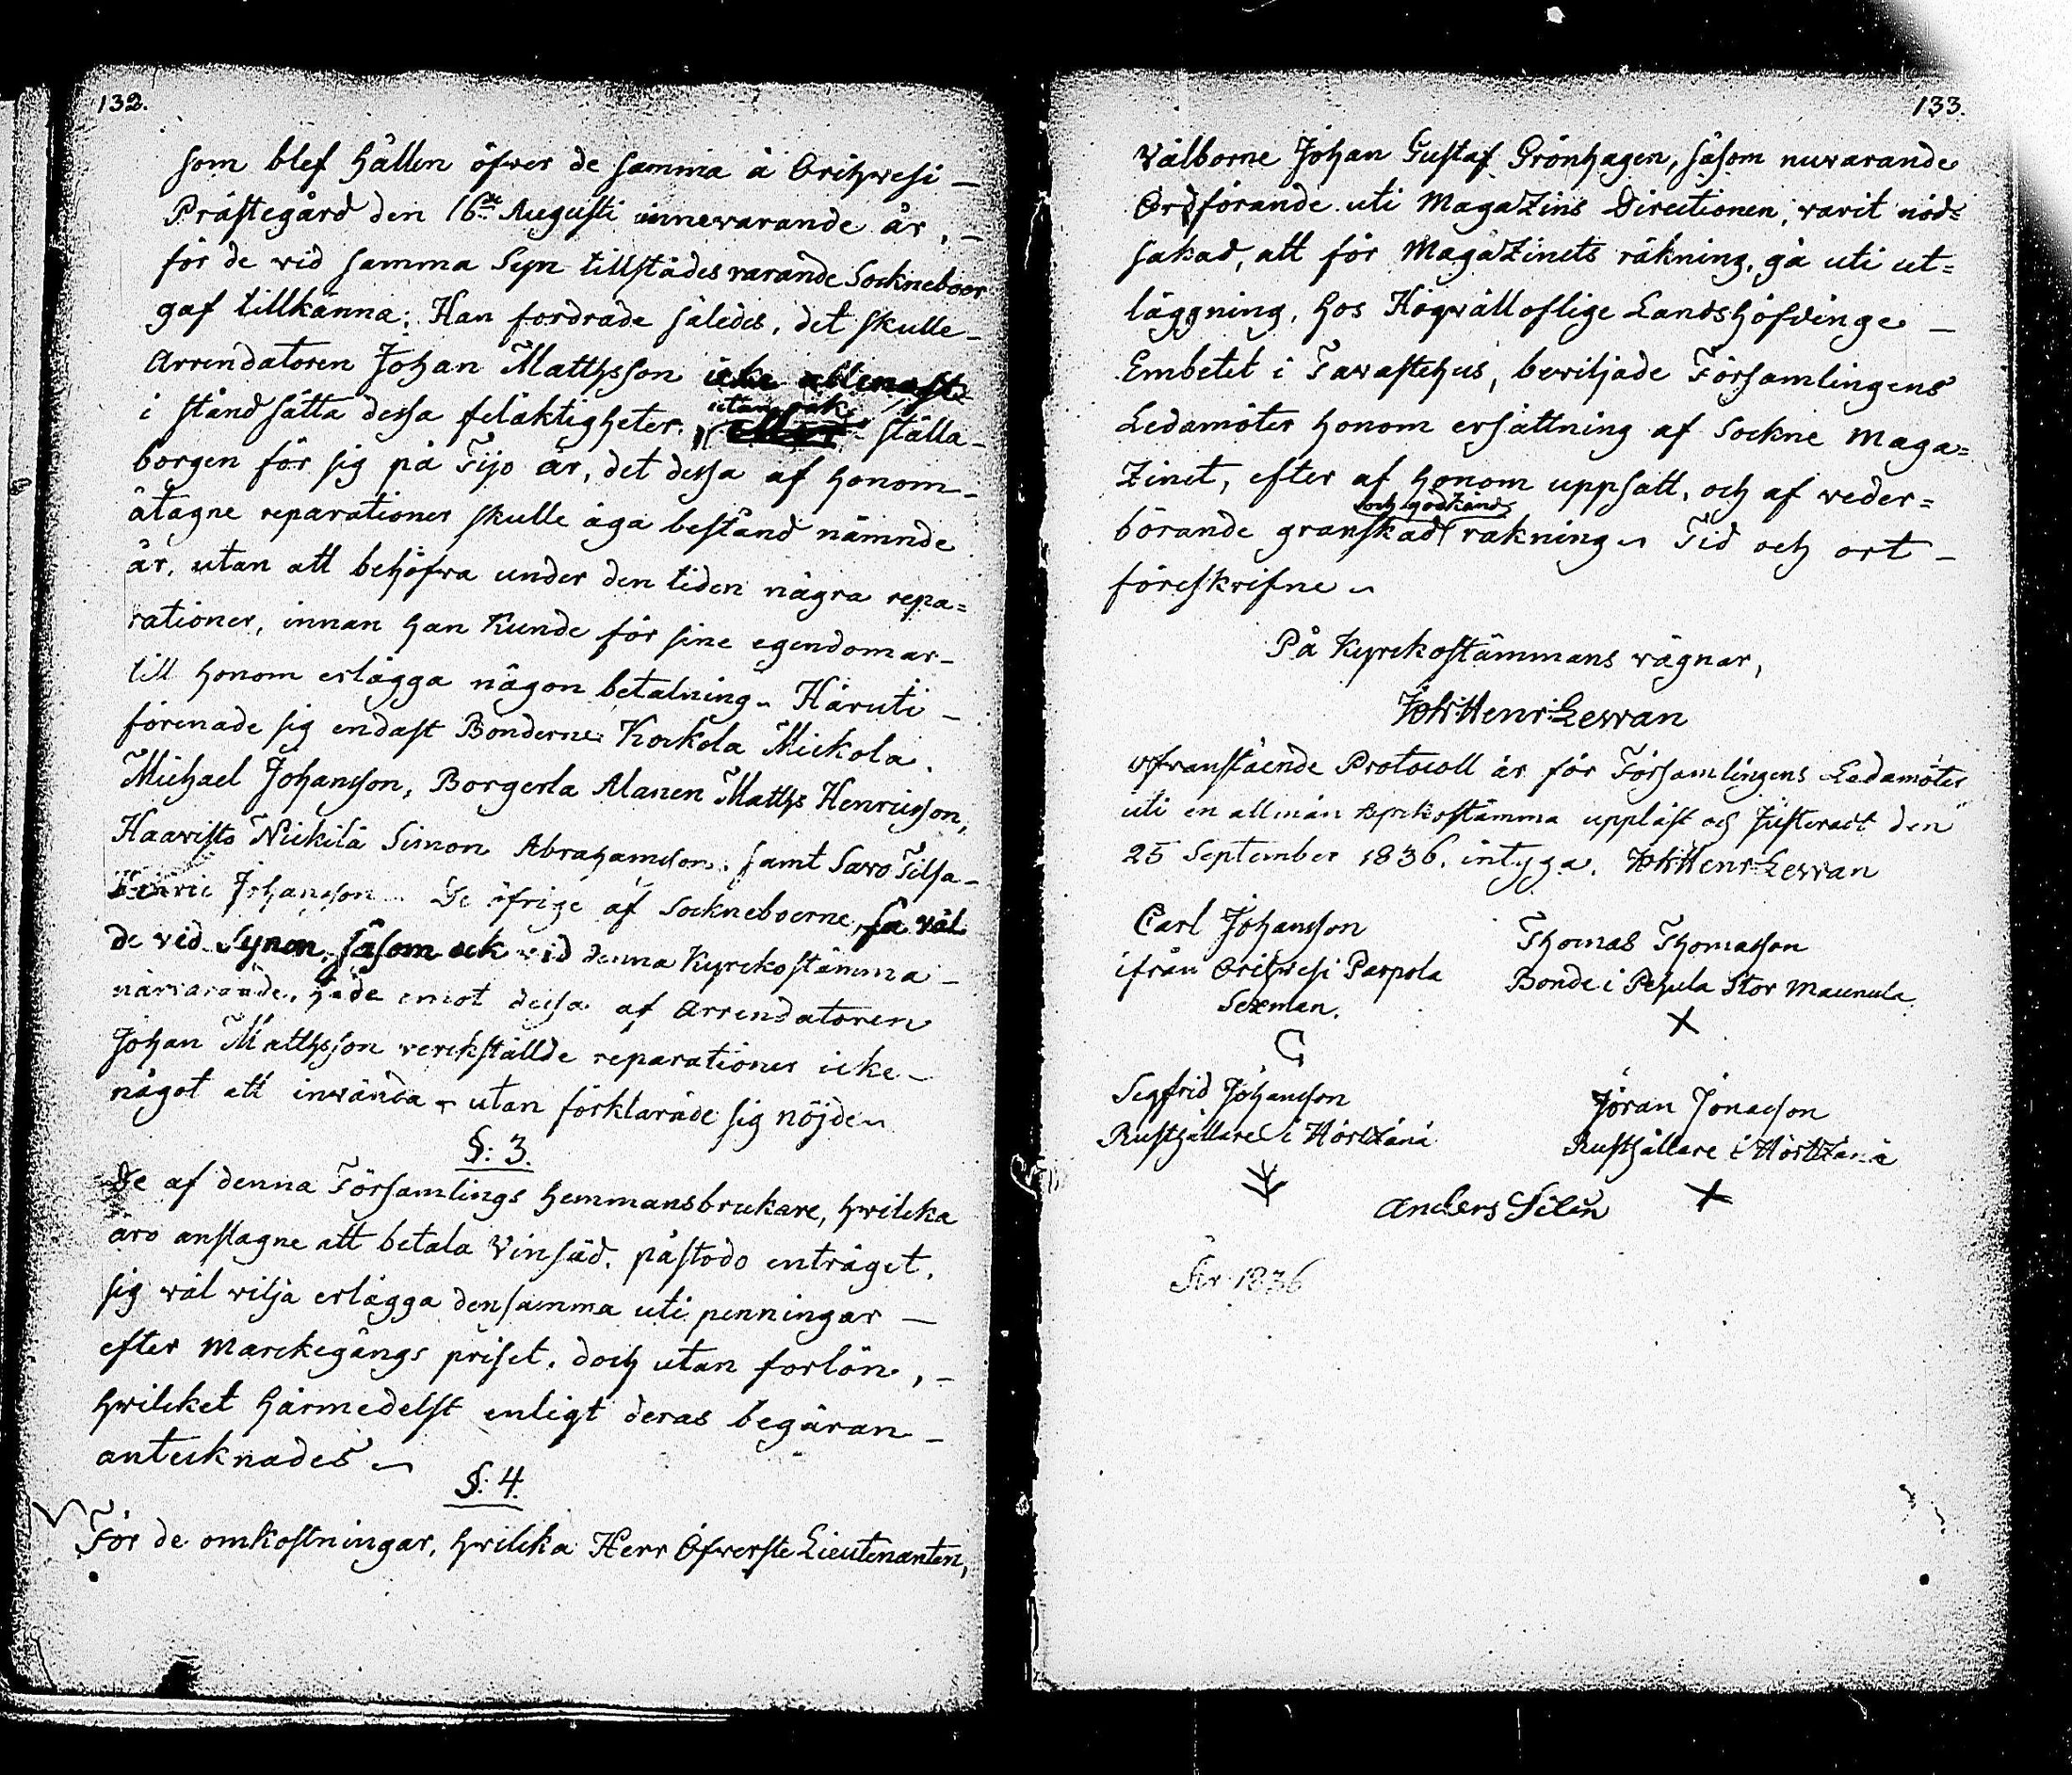 132.
som blef hållen öfver de samma å Orihwesi
Prästegård den 16de Augusti innevarande år,
för de vid samma Syn tillstädesvarande Sockneboer
gaf tillkänna: Han fordrade således, det skulle
Arrendatoren Johan Matthsson icke allenast
i stånd sätta dessa felaktigheter, utan ock ställa
borgen för sig på Tijo år, det dessa af honom
åtagne reparationer skulle äga bestånd nämnde
år, utan att behöfva under den tiden några repa=
rationer, innan han Kunde för sine egendomar
till honom erlägga någon betalning. Häruti
förenade sig endast Bönderne Kockola Mickola
Michael Johansson, Borgerla Alanen Matths Henricsson,
Haavisto Nickilä Simon Abrahamsson, samt Savo Tilsa
Henric Johansson. De öfrige af Sockneboerne så väl
de vid Synen, såsom ock vid denna Kyrckostämma
närvarande, hade emot dessa af Arrendatoren
Johan Matthsson verckställde reparationer icke
något att invända utan förklarade sig nöjde
§: 3.
De af denna Församlings hemmansbrukare, hvilcka
äro anslagne att betala Vinsäd, påstodo enträget,
sig väl vilja erlägga densamma uti penningar
efter Marckegångs priset, doch utan forlön,
hvilcket härmedelst enligt deras begäran
antecknades
§: 4.
För de omkostningar, hvilcka Herr Öfverste Lieutenanten,
133.
Välborne Johan Gustaf Grönhagen, såsom nuvarande
Ordförande uti MagaZins Directionen, varit nöd=
sakad, att för MagaZinets räkning, gå uti ut=
läggning, hos Högvälloflige Landshöfdinge
Embetet i Tavastehus, beviljade Församlingens
Ledamöter honom ersättning af Sockne Maga=
Zinet, efter af honom uppsatt, och af veder=
börande granskad och godkänd räkning Tid och ort
föreskrifne
På Kyrckostämmans vägnar,
Joh: Henr: Levvan
Ofvanstående Protocoll är för Församlingens Ledamöter
uti en allmän Kyrckostämma uppläst och Justeradt den
25 September 1836, intyga. Joh: Henr: Levvan
Carl Johansson
ifrån Orihwesi Parpola
Sexman.
Thomas Thomasson
Bonde i Pehula Stor Maunula
Segfrid Johansson
Rusthållare i HörtZänä
Jöran Jonasson
Rusthållare i HörtZänä
Anders Silén
År 1836